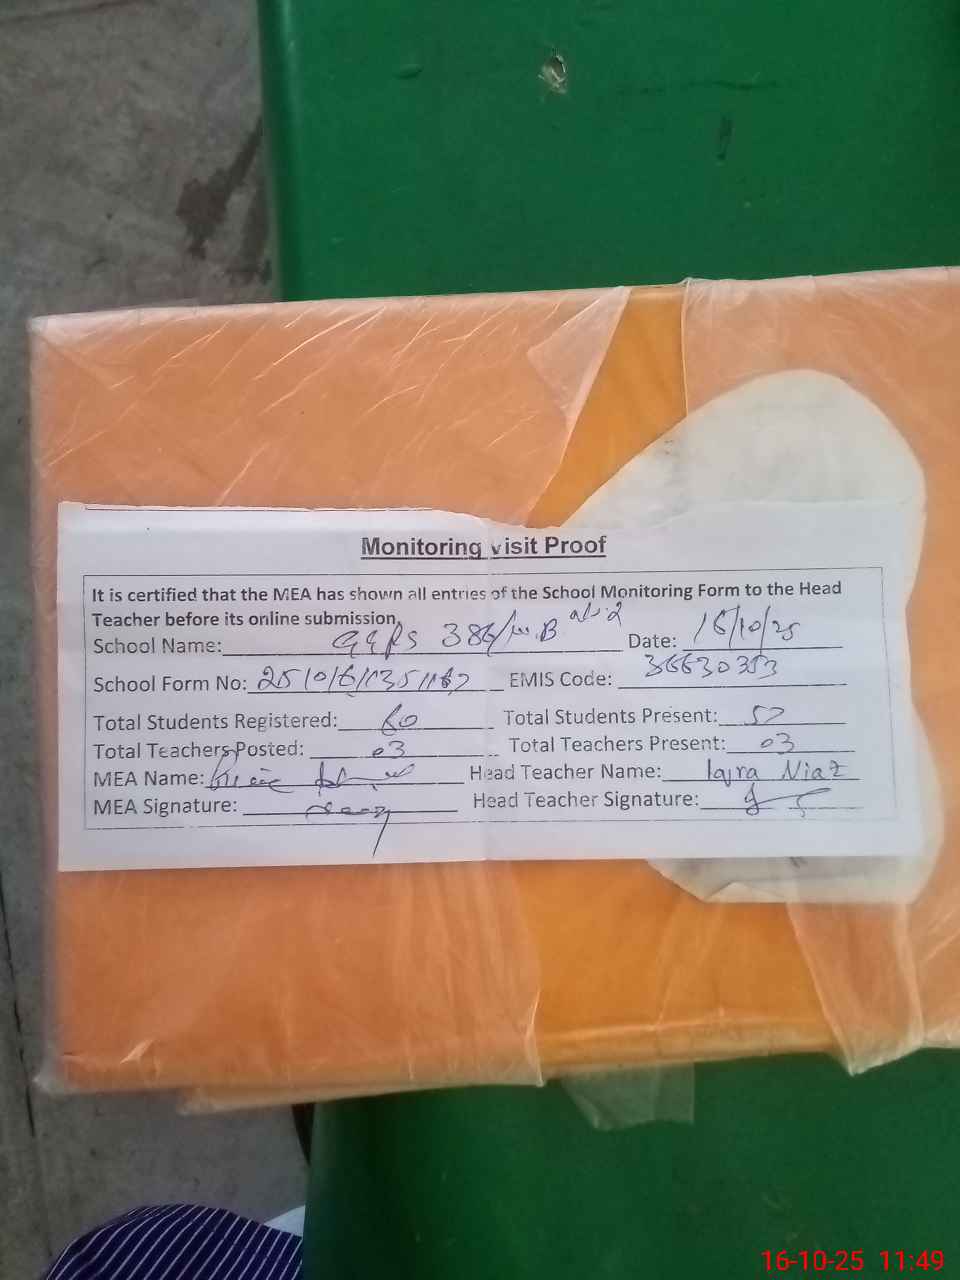 Monitoring visit Proof
It is certified that the MEA has shown all entries of the School Monitoring Form to the Head
Teacher before its online submission.
School Name: GGPS 386/W.B Date: 16/10/25
School Form No: EMIS Code: 36630353
Total Students Registered: 60 Total Students Present: 57
Total Teachers Posted: 03 Total Teachers Present: 03
MEA Name: Head Teacher Name: Iqra Niaz
MEA Signature: Head Teacher Signature:
16-10-25 11:49